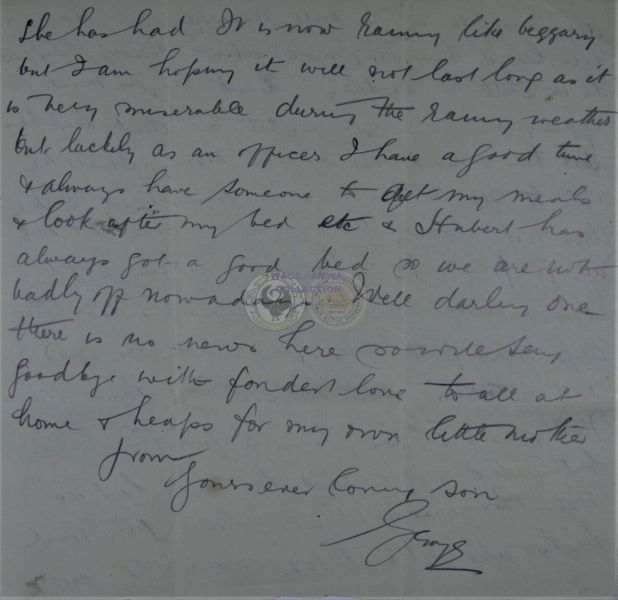 she has had It is now rainy like beggary
but I am hoping it will not last long as it
is very miserable during the rainy weather
but luckily as an officer I have a good time
& always have someone to get my meals
& look after my bed etc & Hubert has
always got a good bed so we are not
badly off nowadays. Well darling one
WAGS - AMWA
COLLECTION
there is no news here so will say
goodbye with fondest love to all at
home & heaps for my own little mother
from
Yours ever loving son
George